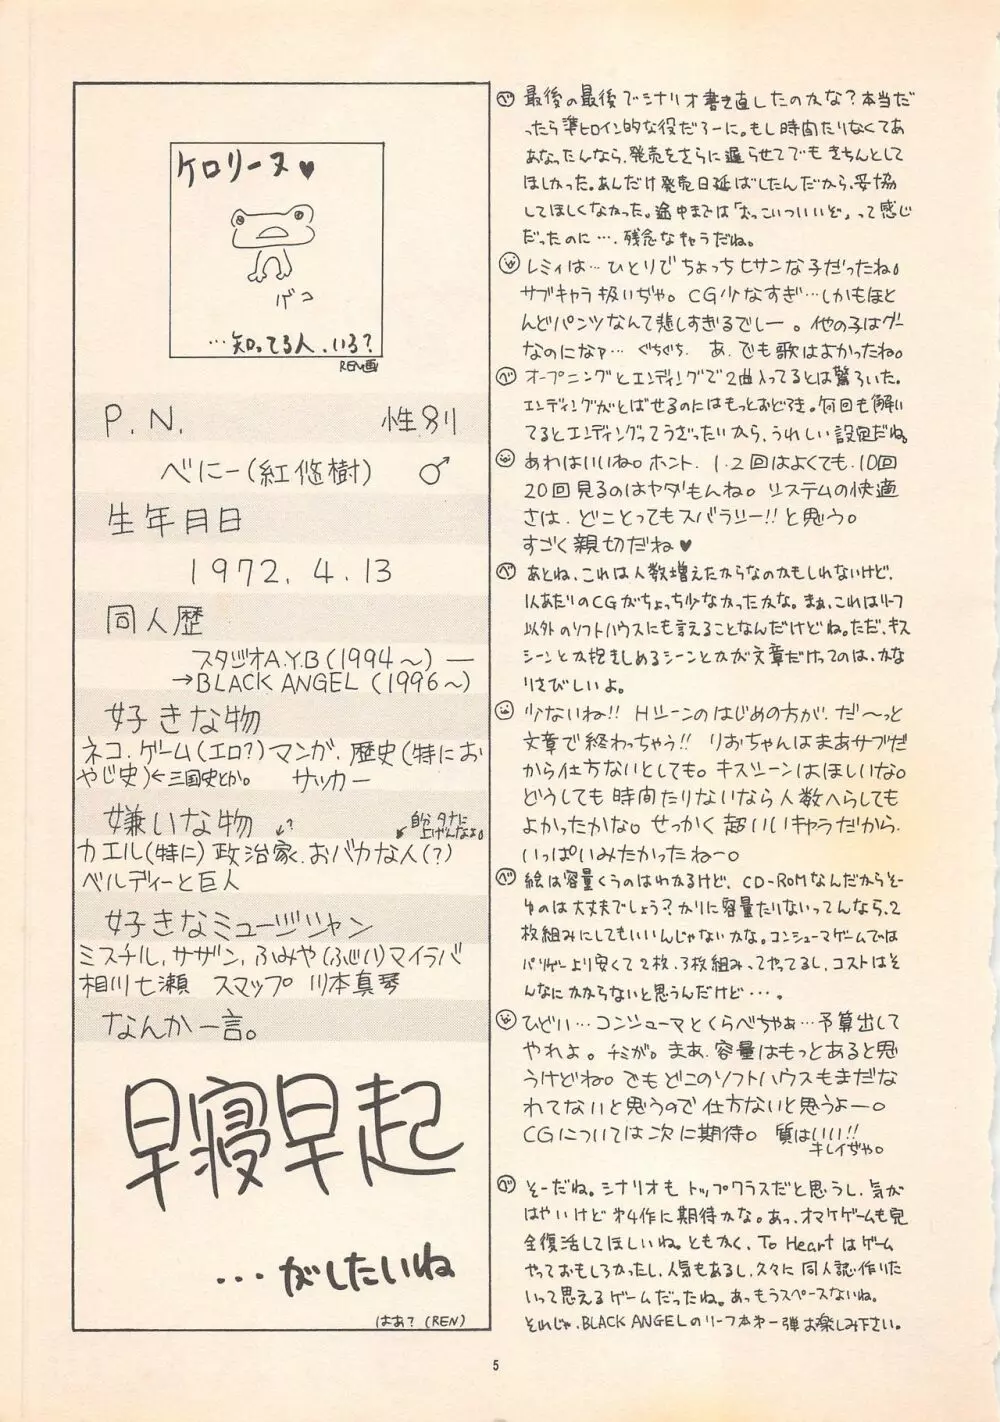 ケロリーヌ♥
ゲコ
…知ってる人、いる?
REN画
P.N. 性別
べにー(紅悠樹) ♂
生年月日
1972. 4. 13
同人歴
スタジオA.Y.B(1994〜)―
→BLACK ANGEL (1996〜)
好きな物
ネコ.ゲーム(エロ?)マンガ.歴史(特にお
やじ史)←三国史とか。 サッカー
嫌いな物 ↙? 自分タナに
上げんなよ。
カエル(特に)政治家.おバカな人(?)
ベルディーと巨人
好きなミュージシャン
ミスチル,サザン,ふみや(ふじい)マイラバ
相川七瀬 スマップ 川本真琴
なんか一言。
早寝早起
…がしたいね
はあ?(REN)
べ 最後の最後でシナリオ書き直したのかな?本当だ
ったら準ヒロイン的な役だろーに。もし時間たりなくてあ
あなったんなら、発売をさらに遅らせてでもきちんとして
ほしかった。あんだけ発売日延ばしたんだから、妥協
してほしくなかった。途中までは「おっこいついいぞ」って感じ
だったのに…. 残念なキャラだね。
レミィは…ひとりでちょっちヒサンな子だったね。
サブキャラ扱いぢゃ。CG少なすぎ…しかもほと
んどパンツなんて悲しすぎるでしー。他の子はグー
なのになァ… ぐちぐち. あ、でも歌はよかったね。
べ オープニングとエンディングで2曲入ってるとは驚ろいた。
エンディングがとばせるのにはもっとおどろき。何回も解い
てるとエンディングってうざったいから、うれしい設定だね。
あれはいいね。ホント. 1.2回はよくても.10回
20回見るのはヤダもんね。システムの快適
さは、どことってもスバラシー!!と思う。
すごく親切だね♥
べ あとね、これは人数増えたからなのかもしれないけど、
1人あたりのCGがちょっち少なかったかな。まぁ、これはリーフ
以外のソフトハウスにも言えることなんだけどね。ただ、キス
シーンとか抱きしめるシーンとかが文章だけってのは、かな
りさびしいよ。
少ないね!! Hシーンのはじめの方が、だ〜っと
文章で終わっちゃう!! りおちゃんはまあサブだ
から仕方ないとしても。キスシーンはほしいな。
どうしても時間たりないなら人数へらしても
よかったかな。せっかく超いいキャラだから、
いっぱいみたかったねー。
べ 絵は容量くうのはわかるけど、CD-ROMなんだからそー
ゆのは大丈夫でしょう?かりに容量たりないってんなら、2
枚組みにしてもいいんじゃないかな。コンシューマゲームでは
パソゲーより安くて2枚、3枚組み、ってやってるし、コストはそ
んなにかからないと思うんだけど…。
ひどい…コンシューマとくらべちゃぁ…予算出して
やれよ。チミが。まあ、容量はもっとあると思
うけどね。でもどこのソフトハウスもまだな
れてないと思うので仕方ないと思うよー。
CGについては次に期待。 質はいい!!
キレイぢゃ。
べ そーだね。シナリオもトップクラスだと思うし、気が
はやいけど第4作に期待かな。あっ、オマケゲームも完
全復活してほしいね。ともかく、To Heartはゲーム
やっておもしろかったし、人気もあるし、久々に同人誌作りた
いって思えるゲームだったね。あっもうスペースないね。
それじゃ、BLACK ANGELのリーフ本第一弾お楽しみ下さい。
5